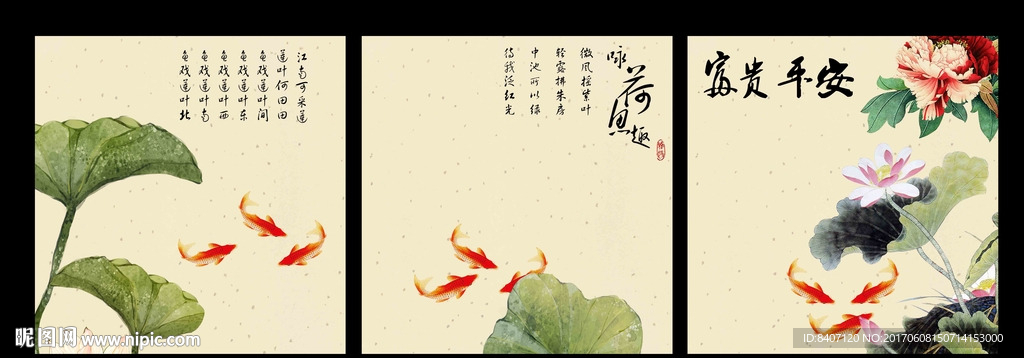 江南可采莲
莲叶何田田
鱼戏莲叶间
鱼戏莲叶东
鱼戏莲叶西
鱼戏莲叶南
鱼戏莲叶北
咏荷思趣
微风摇紫叶
轻露拂朱房
中池所以绿
待我泛红光
富贵平安
昵图网 www.nipic.com
ID:8407120 NO:20170608150714153000